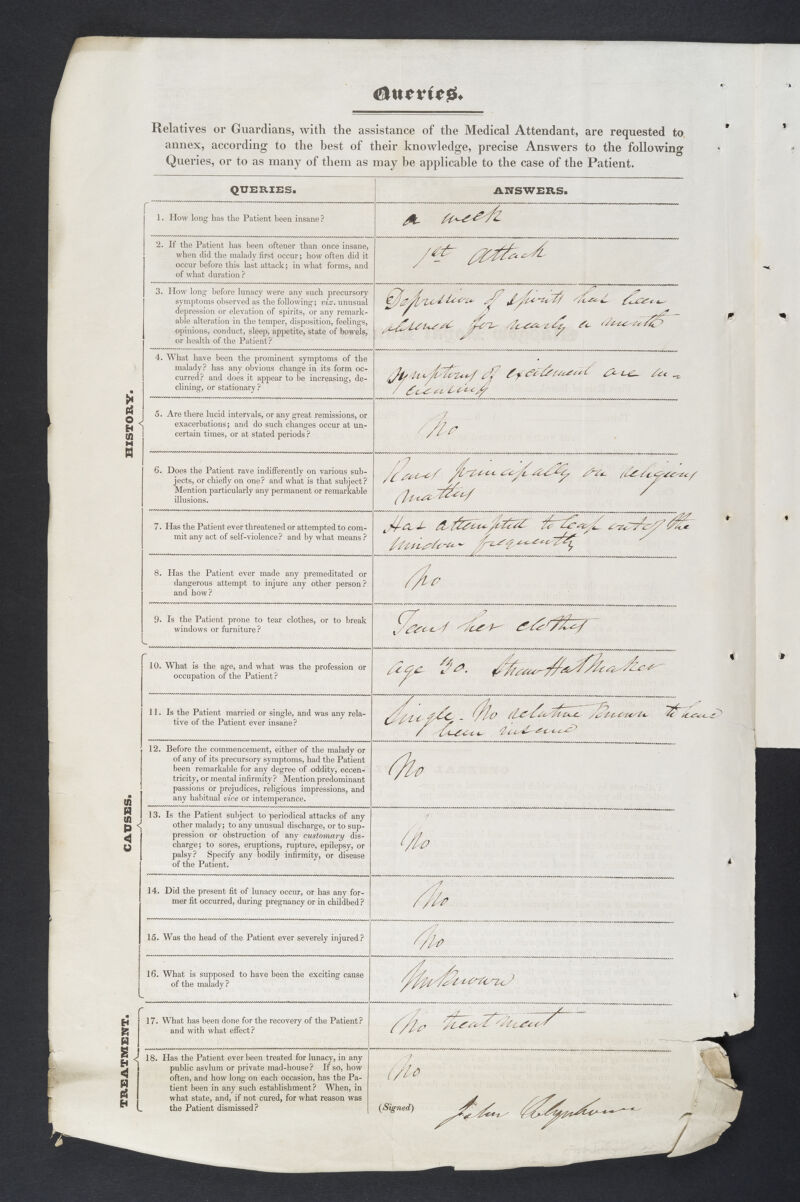 Queries.
Relatives or Guardians, with the assistance of the Medical Attendant, are requested to
annex, according to the best of their knowledge, precise Answers to the following
Queries, or to as many of them as may be applicable to the case of the Patient.
QUERIES. ANSWERS.
HISTORY.
1. How long has the Patient been insane?
a week
2. If the Patient has been oftener than once insane,
when did the malady first occur; how often did it
occur before this last attack; in what forms, and
of what duration?
1st attack
3. How long before lunacy were any such precursory
symptoms observed as the following; viz. unusual
depression or elevation of spirits, or any remark-
able alteration in the temper, disposition, feelings,
opinions, conduct, sleep, appetite, state of bowels,
or health of the Patient?
Depression of spirits has been
observed for nearly a month
4. What have been the prominent symptoms of the
malady? has any obvious change in its form oc-
curred? and does it appear to be increasing, de-
clining, or stationary?
Symptoms of excitement are in=
creasing
5. Are there lucid intervals, or any great remissions, or
exacerbations; and do such changes occur at un-
certain times, or at stated periods?
No
6. Does the Patient rave indifferently on various sub-
jects, or chiefly on one? and what is that subject?
Mention particularly any permanent or remarkable
illusions.
Raves principally on religious
matters
7. Has the Patient ever threatened or attempted to com-
mit any act of self-violence? and by what means?
Has attempted to leap out of the
window frequently
8. Has the Patient ever made any premeditated or
dangerous attempt to injure any other person?
and how?
No
9. Is the Patient prone to tear clothes, or to break
windows or furniture?
Tears her clothes
CAUSES.
10. What is the age, and what was the profession or
occupation of the Patient?
age 30. Straw Hat Maker
11. Is the Patient married or single, and was any rela-
tive of the Patient ever insane?
Single - No relative known to have
been insane
12. Before the commencement, either of the malady or
of any of its precursory symptoms, had the Patient
been remarkable for any degree of oddity, eccen-
tricity, or mental infirmity? Mention predominant
passions or prejudices, religious impressions, and
any habitual vice or intemperance.
No
13. Is the Patient subject to periodical attacks of any
other malady; to any unusual discharge, or to sup-
pression or obstruction of any customary dis-
charge; to sores, eruptions, rupture, epilepsy, or
palsy? Specify any bodily infirmity, or disease
of the Patient.
No
14. Did the present fit of lunacy occur, or has any for-
mer fit occurred, during pregnancy or in childbed?
No
15. Was the head of the Patient ever severely injured?
No
16. What is supposed to have been the exciting cause
of the malady?
Unknown
TREATMENT.
17. What has been done for the recovery of the Patient?
and with what effect?
No treatment
18. Has the Patient ever been treated for lunacy, in any
public asylum or private mad-house? If so, how
often, and how long on each occasion, has the Pa-
tient been in any such establishment? When, in
what state, and, if not cured, for what reason was
the Patient dismissed?
No
(Signed) John